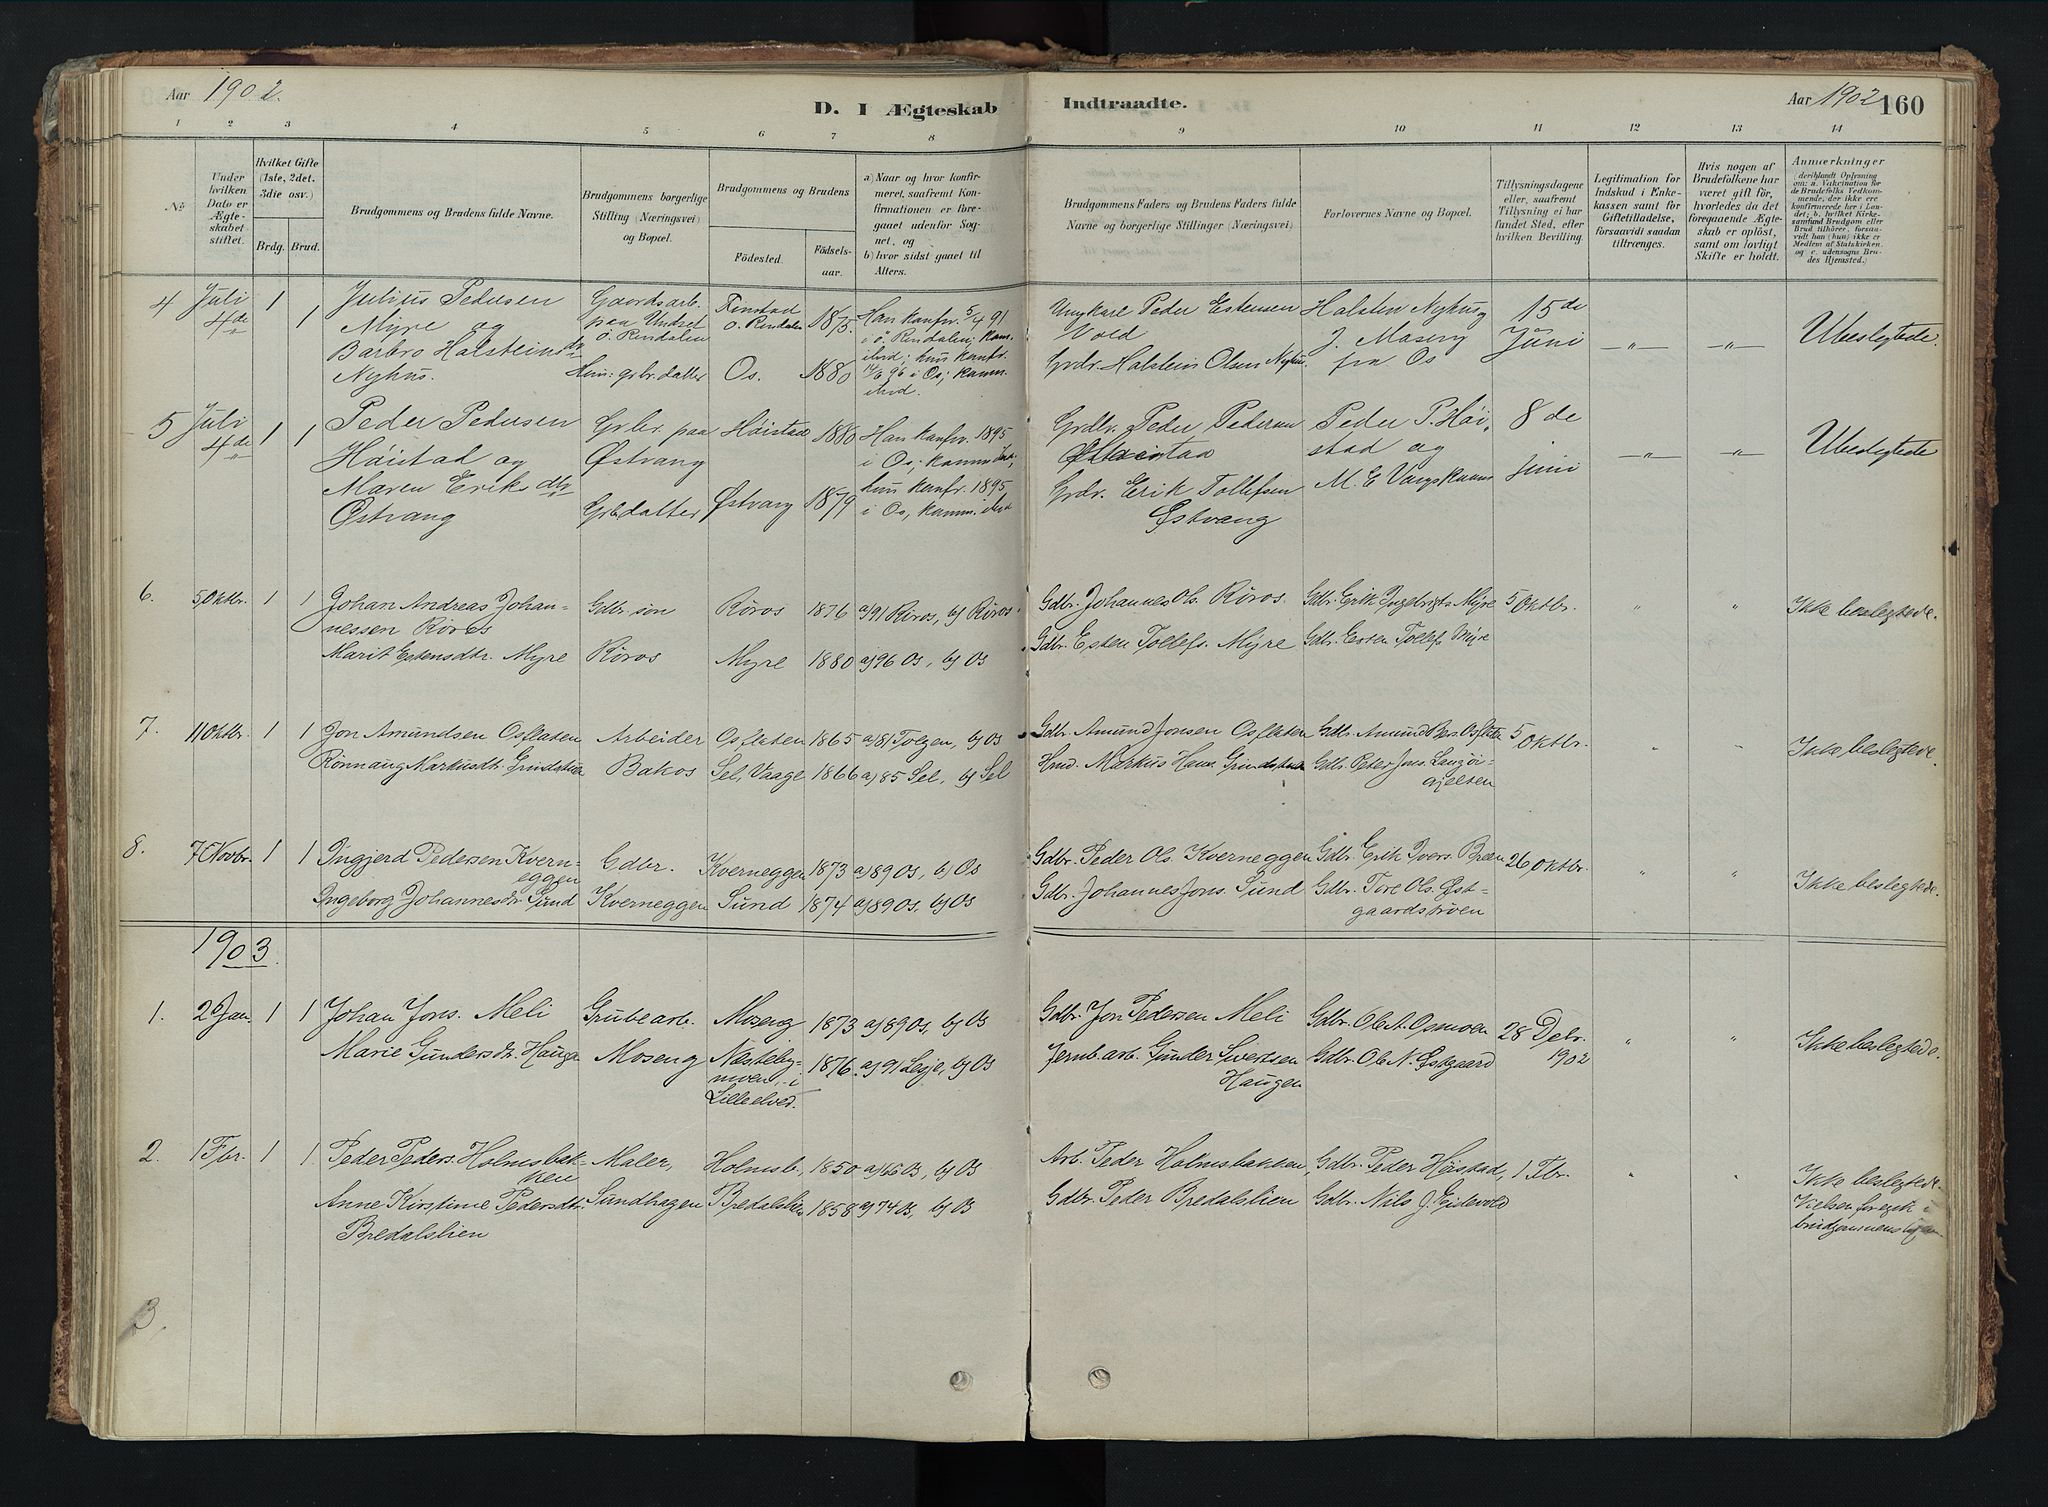 Aar 1902.
D. I Ægteskab
Indtraadte.
Aar 1902
160
1 2 3 4 5 6 7 8 9 10 11 12 13 14
No.
Under
hvilken
Dato er
Ægte-
skabet
stiftet.
Hvilket Gifte
(1ste, 2det,
3die osv.)
Brdg. Brud.
Brudgommens og Brudens fulde Navne.
Brudgommens borgerlige
Stilling (Næringsvei)
og Bopæl.
Brudgommens og Brudens
Fødested.
Fødsels-
aar.
a) Naar og hvor konfir-
meret, saafremt Kon-
firmationen er fore-
gaaet udenfor Sog-
net, og
b) hvor sidst gaaet til
Alters.
Brudgommens Faders og Brudens Faders fulde
Navne og borgerlige Stillinger (Næringsvei)
Forlovernes Navne og Bopæl.
Tillysningsdagene
eller, saafremt
Tillysning ei har
fundet Sted, efter
hvilken Bevilling.
Legitimation for
Indskud i Enke-
kassen samt for
Giftetilladelse,
forsaavidt saadan
tiltrænges.
Hvis nogen af
Brudefolkene har
været gift før,
hvorledes da det
foregaaende Ægte-
skab er opløst,
samt om lovligt
Skifte er holdt.
Anmærkninger
(deriblandt Oplysning
om: a. Vakcination for
de Brudefolks Vedkom-
mende, der ikke ere
konfirmerede her i Lan-
det; b. hvilket Kirke-
samfund Brudgom eller
Brud tilhører, forsaa-
vidt han (hun) ikke er
Medlem af Statskirken.
og c. udensogns Bru-
des Hjemsted.)
4 Juli 4de 1 1
Julius Pedersen
Myre og
Barbro Halsteinsdtr
Nyhus.
Gaardsarb.
paa Undset
ö. Rendalen
Hun: grbr. datter
Finstad
ö. Rendalen 1875.
Os. 1880
Han konfr. 5/4 91
i ö. Rendalen; kom.
ihvid; hun konfr.
96 i Os; komm.
ihvid.
Ungkarl Peder Estensen
Vold
Grdr. Halstein Olsen Nyhus
Halsten Nyhus og
J. Moseng
fra Os
15de
Juni
—„— —„— Ubeslegtede.
5 Juli 4de 1 1
Peder Pedersen
Høistad og
Maren Eriksdtr
Østvang
Grbr. paa
Østvang
Grbdatter
Høistad 1880
Østvang 1879
Han konfr. 1895
i Os; komm
hun konfr. 1895
i Os, komm.
Grdbr. Peder Pedersen
Grdr. Erik Tollefsen
Østvang
Peder P. Høi-
stad og
M. E Vangskaasen
8de
Juni
—„— —„— Ubeslegtede
6. 5 Oktbr. 1 1
Johan Andreas Johan-
nessen Røros
Marit Estensdtr. Myre
Gdbr. søn
Røros
Røros 1876 a) 91 Røros, b) Røros
Myre 1880 a) 96 Os, b) Os
Gdbr. Johannes Ols. Røros.
Gdbr. Esten Tollefs. Myre
Gdbr. Erik Ingebrigts Myre
Gdbr. Esten Tollefs Myre
5 Oktbr. „ „ Ikke beslegtede.
7. 11 Oktbr. 1 1
Jon Amundsen Osflaten
Rønnaug Markusdt. Grindstuen
Arbeider
Bakos
Osflaten 1865 a) 81 Tolgen, b) Os
Sel, Vaage 1866 a) 85 Sel, b) Sel
Gdbr. Amund Jonsen Osflaten
Hmd. Markus Hans. Grindstuen
Gdbr. Amund Osflaten
Gdbr. Peter Jons.
5 Oktbr. „ „ Ikke beslegtede.
8. 7 Novbr. 1 1
Ingjerd Pedersen Kvern-
eggen
Ingeborg Johannesdtr. Sund
Gdbr.
Kverneggen
Kverneggen 1873 a) 89 Os, b) Os
Sund 1874 a) 89 Os, b) Os
Gdbr. Peder Ols. Kverneggen
Gdbr. Johannes Jons. Sund
Gdbr. Erik Ivers. Breen
Gdbr. Tore Ols. Øst-
gaardstrøen
26 Oktbr. „ „ Ikke beslegtede.
1903.
1. 2 Jan. 1 1
Johan Jons. Meli
Marie Gundersdtr. Haugen
Grubearb.
Moseng
Moseng 1873 a) 89 Os, b) Os
Næsteby-
moen, i
Lilleelved. 1876. a) 91 Lesje, b) Os
Gdbr. Jon Pedersen Meli
Jernb.arb. Gunder Sivertsen
Haugen
Gdbr. Ole A. Osmoen
Gdbr. Ole N. Østgaard
28 Debr.
1902
„ „ Ikke beslegtede.
2. 1 Fbr. 1 1
Peder Peders. Holmsbak-
ken
Anne Kirstine Pedersdtr.
Bredalslien
Maler,
Sundhagen
Holmsb. 1850 a) 66 Os, b) Os
Bredalslien 1858 a) 74 Os, b) Os
Arb. Peder Holmsbakken,
Gdbr. Peder Bredalslien
Gdbr. Peder Høistad,
Gdbr. Nils J. Eidsvold
1 Fbr. „ „ Ikke beslegtede.
Vielsen foregik i
brudgommens
3.